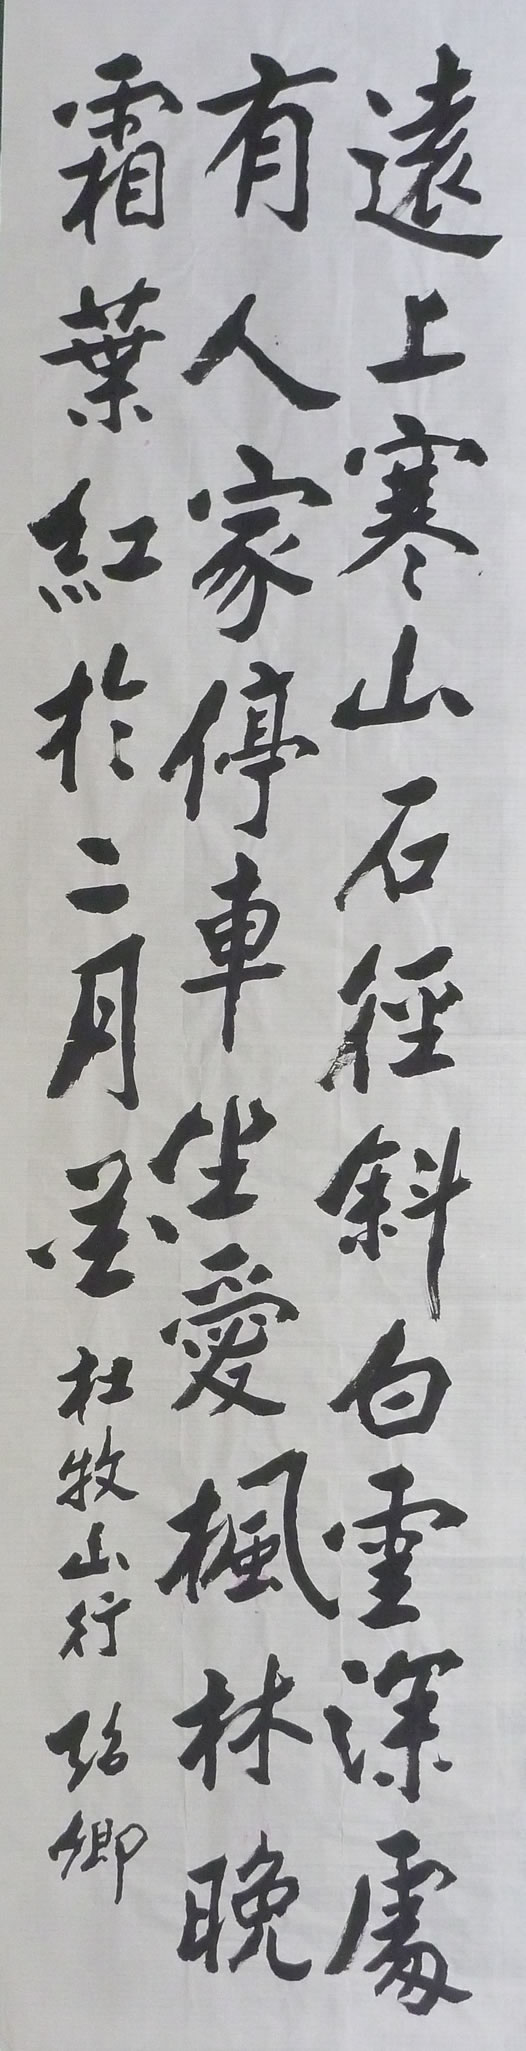 遠上寒山石徑斜白雲深處
有人家停車坐愛楓林晚
霜葉紅於二月花 杜牧山行 卿